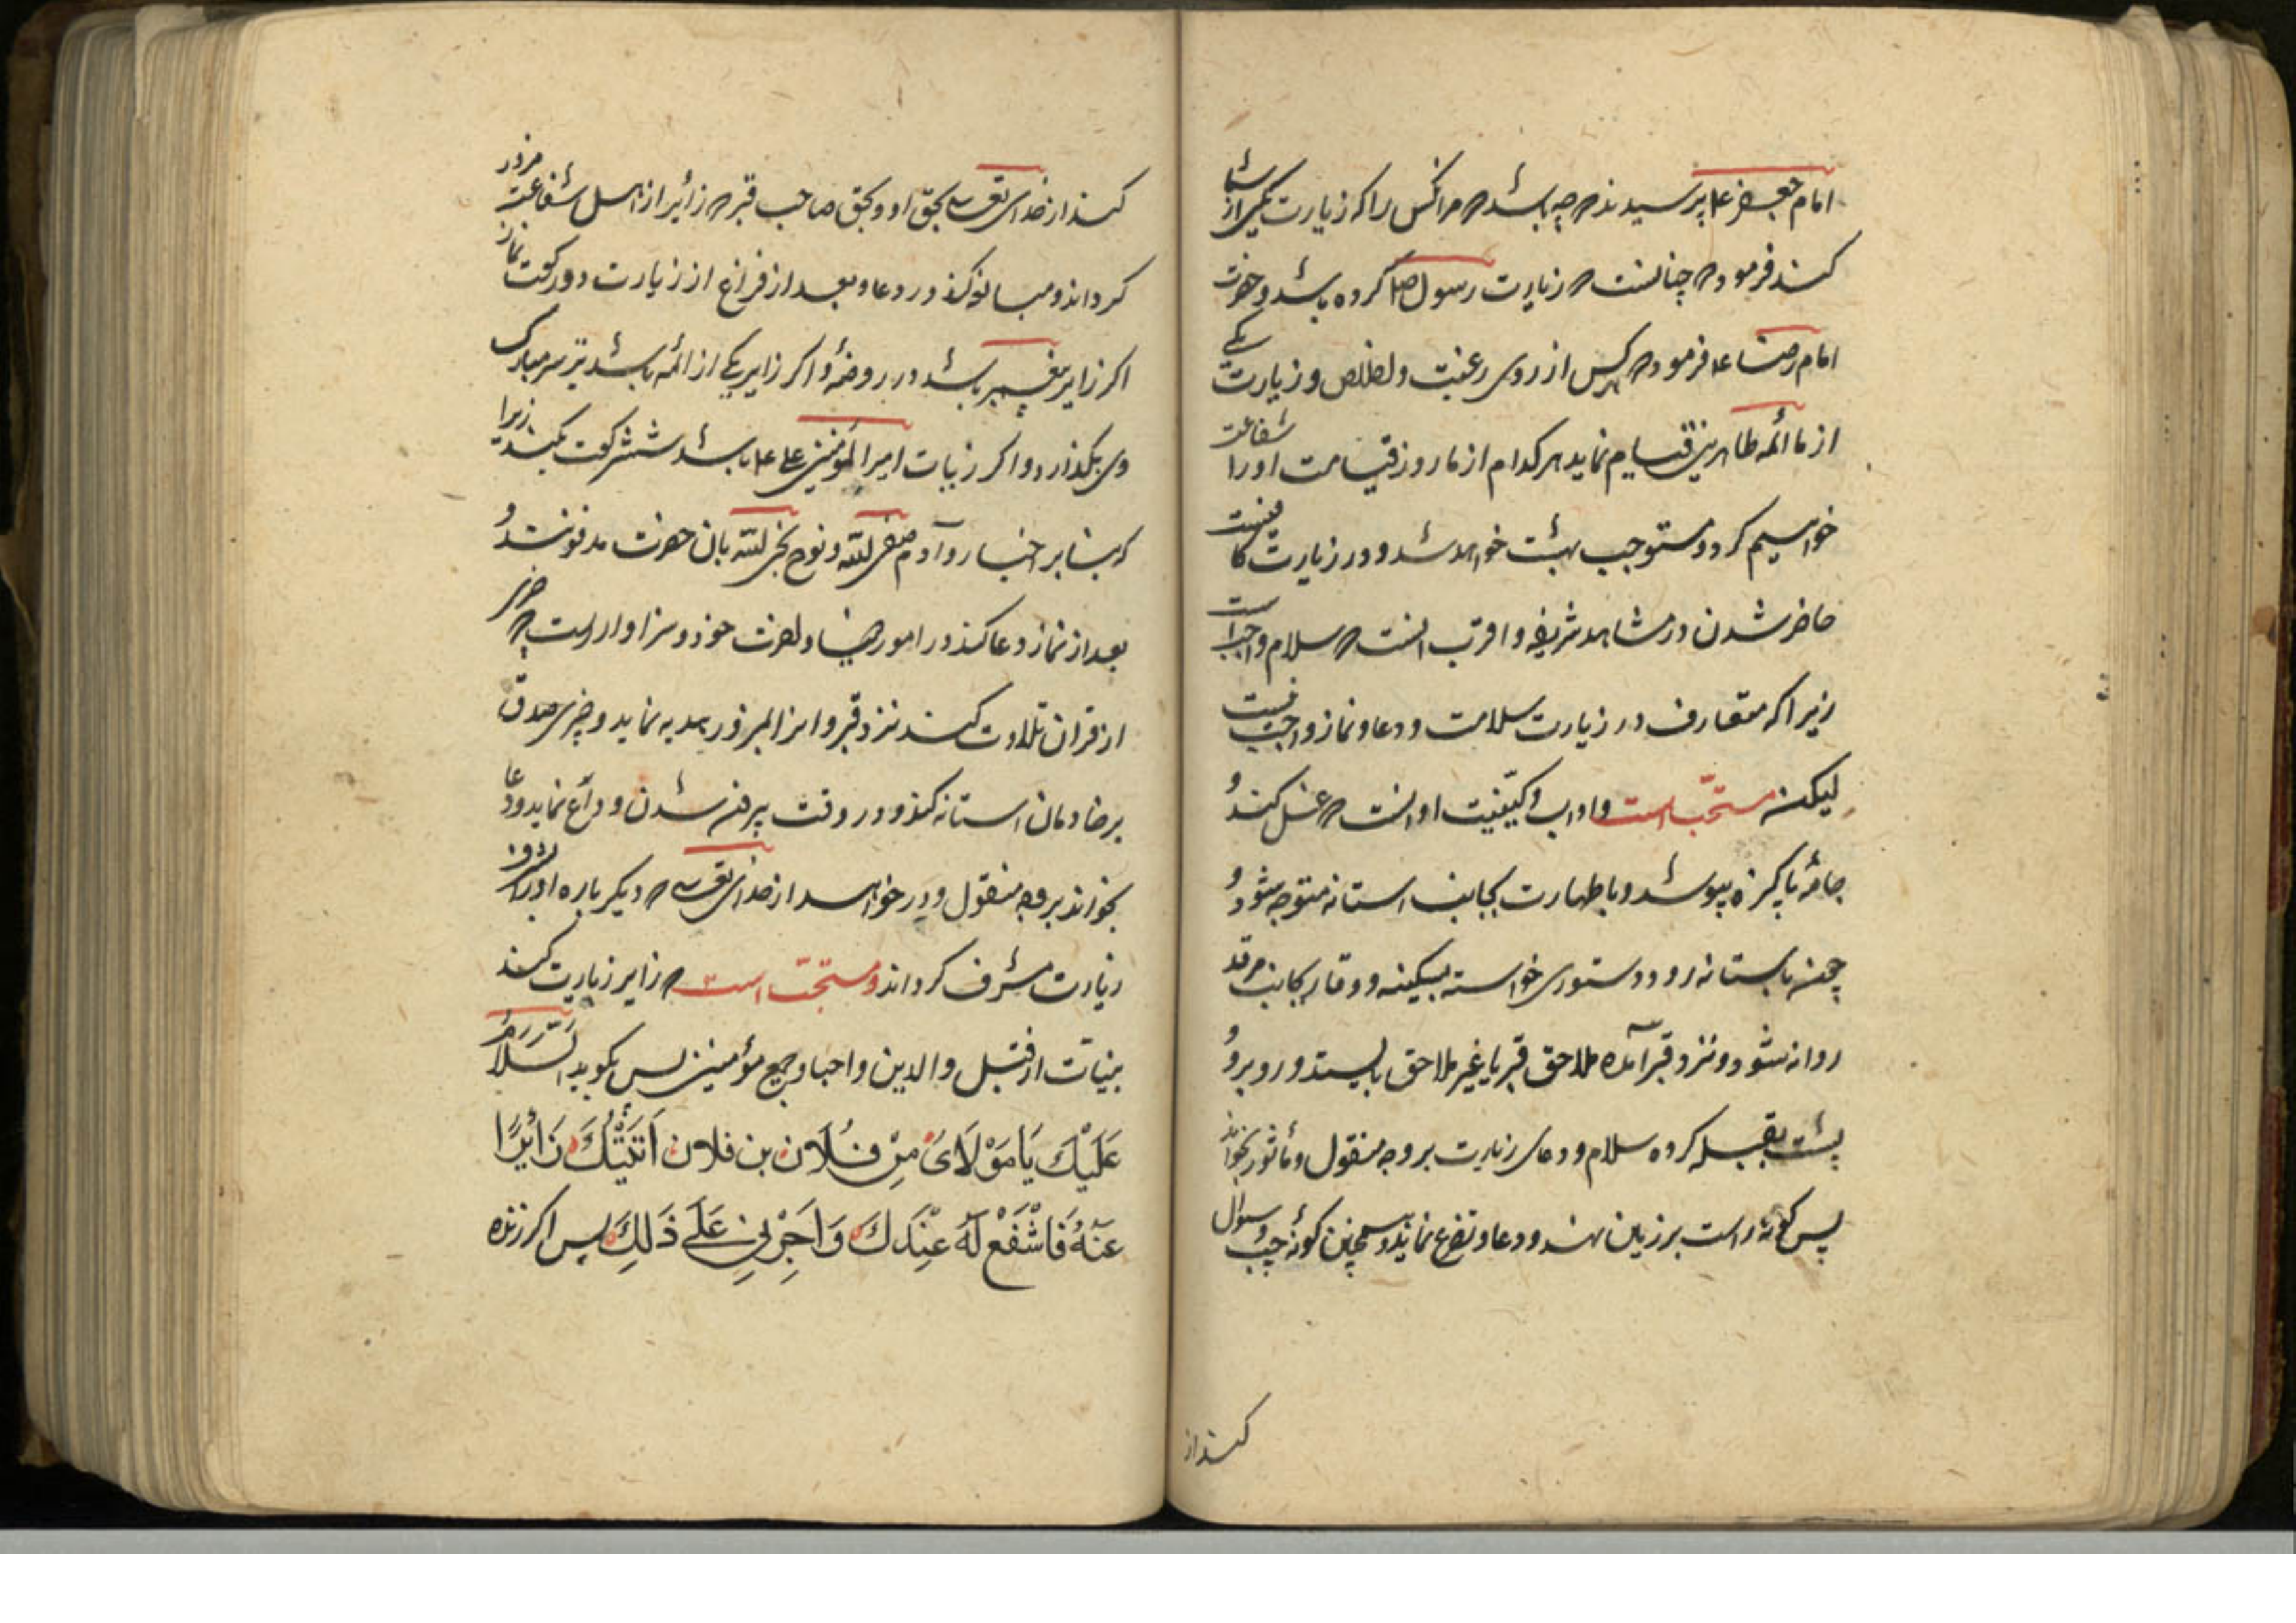 امام جعفر ع پرسیدند که چه باشد که مر انکس را که زیارت یکی از شما
کند فرمود که چنانست که زیارت رسول ص کرده باشد و حضرت
امام رضا ع فرمود که هر کس از روی رغبت و اخلاص و زیارت یکی
از ما ائمه طاهرین قیام نماید هر کدام از ما روز قیامت او را شفاعت
خواهیم کرد و مستوجب بهشت خواهد شد و در زیارت کافیست
حاضر شدن در مشاهد شریفه و اقرب انست که سلام واجب است
زیرا که متعارف در زیارت سلامت و دعا و نماز واجب نیست
لیکن مستحب است و اداب و کیفیت او انست که غسل کند و
جامهٔ پاکیزه بپوشد و با طهارت بجانب استانه متوجه شود و
چون باستانه رود دستوری خواسته بسکینه و وقار بجانب مرقد
روانه شود و نزد قبر آمده ملاحق قبر یا غیر ملاحق بایستد و رو برو و
پشت بقبله کرده سلام و دعای زیارت بر وجه منقول و مأثور بخواند
پس کونهٔ راست بر زمین نهد و دعا و تضرع نماید و همچنین کونهٔ چپ و سوال
کند از
کند از خدای تعالی بحق او و بحق صاحب قبر که زائر را از اهل شفاعت مزور
کرداند و مبالغه کند در دعا و بعد از فراغ از زیارت دو رکعت نماز
اکر زایر پیغمبر باشد در روضهٔ و اکر زایر یکی از ائمه باشد بر سر مبارک
وی بکذارد و اکر زیات امیر المومنین علی ع باشد شش رکعت بکند زیرا
که بنابر اخبار و آدم صفی الله و نوح نجی الله بان حضرت مدفونند و
بعد از نماز دعا کند در امور دنیا و اخرت خود و سزاوار است که جزی
از قران تلاوت کند نزد قبر و انرا بمزور هدیه نماید و چیزی صدق
بر خادمان استانه کند و در وقت بیرون شدن وداع نماید و دعا
بخواند بر وجه منقول و در خواهد از خدای تعالی که دیکر باره او را بشرف
زیارت مشرف کرداند و مستحب است که زایر زیارت کند
بنیابت از قبل والدین و احبا و جمیع مؤمنین پس بکوید اَلسَّلَامُ
عَلَیْكَ یَا مَوْلَایَ مِنْ فُلَان بن فلان اَتَیْتُكَ زَائِرًا
عَنْهُ فَاشْفَعْ لَهُ عِنْدَكَ وَاَجِرْنِی عَلَی ذَلِكَ پس اکر زنده